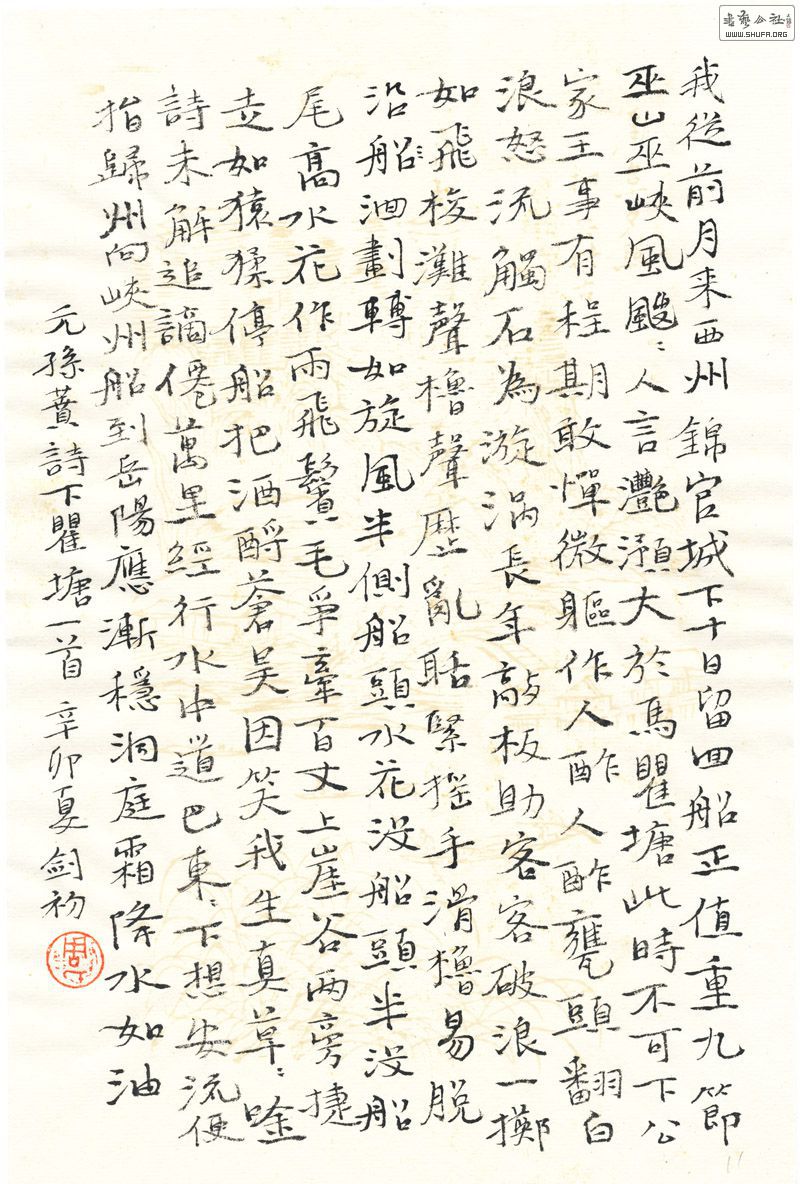 我從前月来西州錦官城下十日留迴船正值重九節
巫山巫峽風颼〻人言灧澦大於馬瞿塘此時不可下公
家王事有程期敢憚微軀作人酢人酢甕頭翻白
浪怒流觸石為漩渦長年敲板助客客破浪一擲
如飛梭灘聲櫓聲歷亂聒緊摇手滑櫓易脱
沿船迴劃轉如旋風半側船頭水花没船頭半没船
尾高水花作雨飛鬢毛争牽百丈上崖谷两旁捷
走如猿猱停船把酒酹蒼昊因笑我生真草〻唫
詩未解追謫僊萬里經行水中道巴東〻下想安流便
指歸州向峽州船到岳陽應漸穩洞庭霜降水如油
元孫蕡詩下瞿塘一首 辛卯夏 劍初
周
書藝公社
WWW.SHUFA.ORG
11